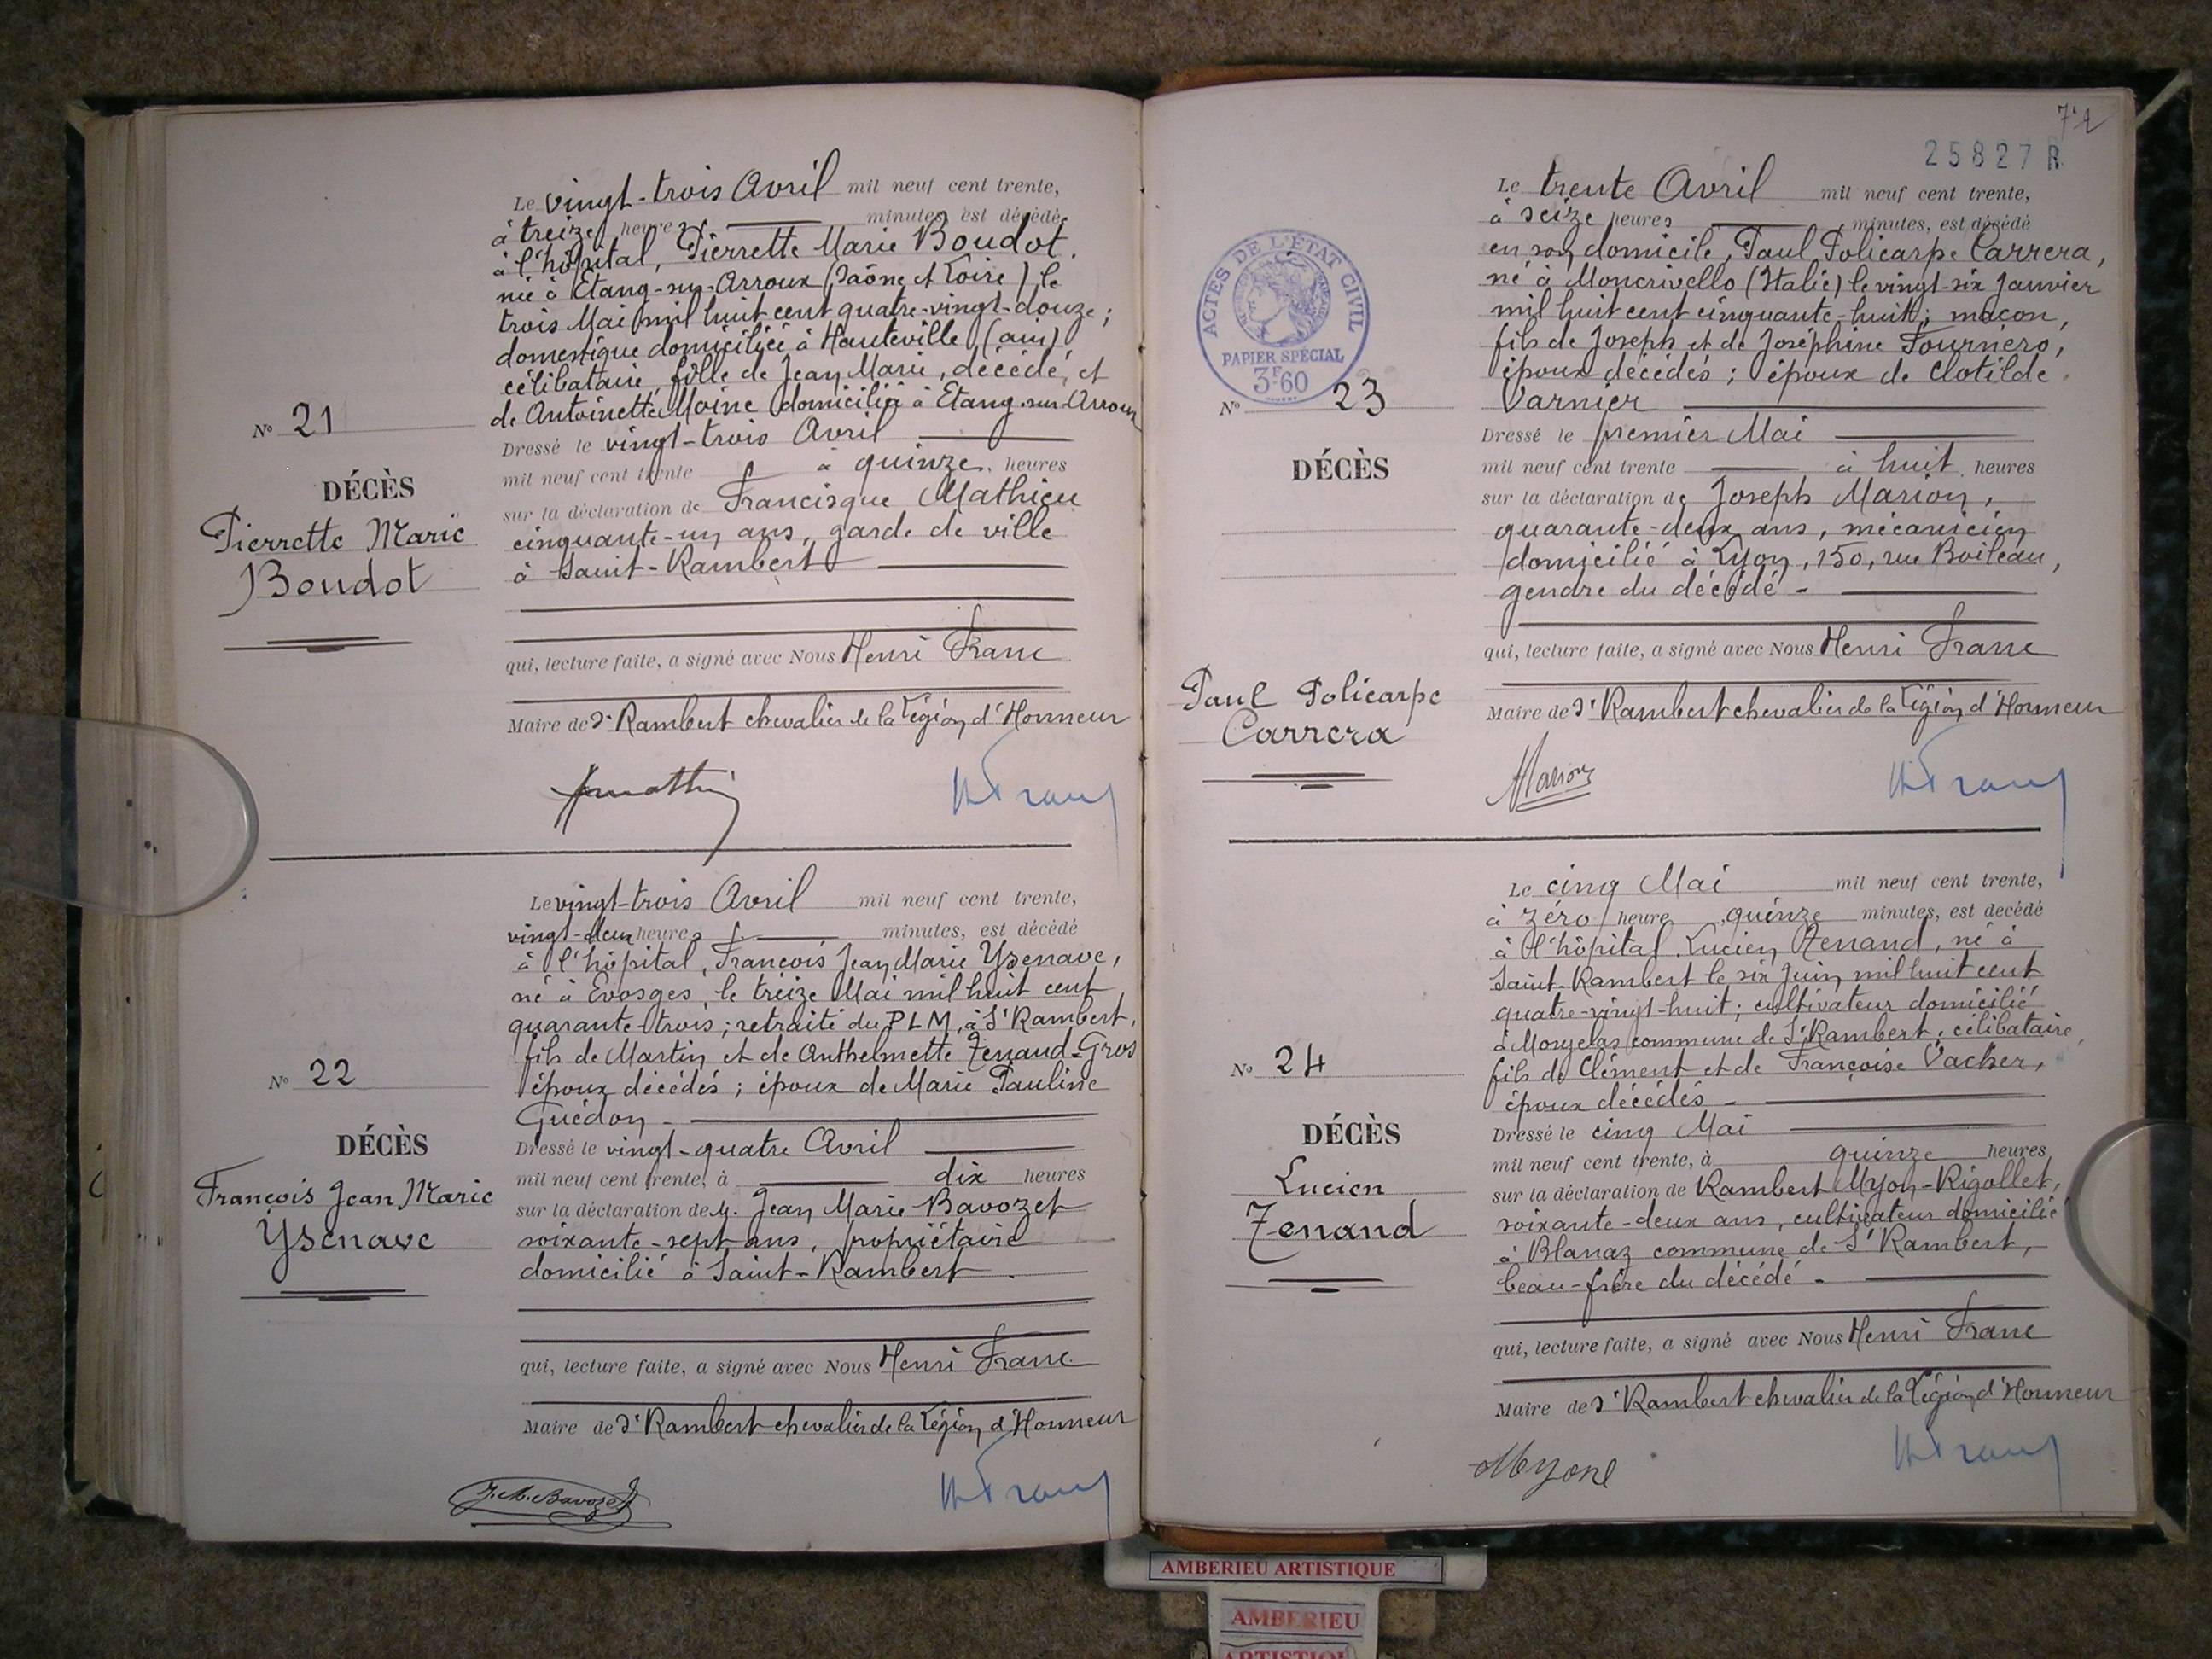 Le vingt-trois Avril mil neuf cent trente,
à treize heures minutes est décédée
à l'hôpital, Pierrette Marie Boudot,
née à Etang-sur-Arroux (Saône et Loire) le
trois Mai mil huit cent quatre-vingt-douze;
domestique domiciliée à Hauteville (ain)
célibataire, fille de Jean Marie, décédé, et
de Antoinette Moine domiciliée à Etang-sur-Arroux
N° 21
Dressé le vingt-trois Avril
mil neuf cent trente à quinze heures
DÉCÈS
sur la déclaration de Francisque Mathieu
Pierrette Marie
cinquante-un ans, garde de ville
Boudot
à Saint-Rambert
qui, lecture faite, a signé avec Nous Henri Franc
Maire de St Rambert chevalier de la Légion d'Honneur
Le vingt-trois Avril mil neuf cent trente,
vingt-deux heures minutes, est décédé
à l'hôpital, François Jean Marie Ysenave,
né à Evosges, le treize Mai mil huit cent
quarante-trois; retraité du PLM, à St Rambert,
fils de Martin et de Anthelmette Zenand-Gros
N° 22
époux décédés; époux de Marie Pauline
Guédon -
DÉCÈS
Dressé le vingt-quatre Avril
mil neuf cent trente, à dix heures
François Jean Marie
Ysenave
sur la déclaration de M. Jean Marie Bavozet
soixante-sept ans, propriétaire
domicilié à Saint-Rambert
qui, lecture faite, a signé avec Nous Henri Franc
Maire de St Rambert chevalier de la Légion d'Honneur
J. M. Bavozet
25827 R
Le trente Avril mil neuf cent trente,
à seize heures minutes, est décédé
en son domicile, Paul Policarpe Carrera,
né à Moncrivello (Italie) le vingt-six Janvier
mil huit cent cinquante-huit; maçon,
fils de Joseph et de Joséphine Fourniero,
époux décédés; époux de Clotilde
Varnier
ACTES DE L'ÉTAT CIVIL
PAPIER SPÉCIAL
3F60
N° 23
Dressé le premier Mai
DÉCÈS
mil neuf cent trente à huit heures
sur la déclaration de Joseph Marion,
quarante-deux ans, mécanicien
domicilié à Lyon, 150, rue Boileau,
gendre du décédé -
qui, lecture faite, a signé avec Nous Henri Franc
Paul Policarpe
Carrera
Maire de St Rambert chevalier de la Légion d'Honneur
Marion
Le cinq Mai mil neuf cent trente,
à zéro heure quinze minutes, est decédé
à l'hôpital Lucien Zenand, né à
Saint-Rambert le six Juin mil huit cent
quatre-vingt-huit; cultivateur domicilié
à commune de St Rambert, célibataire,
fils de Clément et de Françoise Vacher,
époux décédés -
N° 24
DÉCÈS
Dressé le cinq Mai
mil neuf cent trente, à quinze heures
Lucien
Zenand
sur la déclaration de Rambert Myon-Rigollet,
soixante-deux ans, cultivateur domicilié
à Blanaz commune de St Rambert,
beau-frère du décédé -
qui, lecture faite, a signé avec Nous Henri Franc
Maire de St Rambert chevalier de la Légion d'Honneur
AMBERIEU ARTISTIQUE
AMBERIEU
ARTISTIQUE